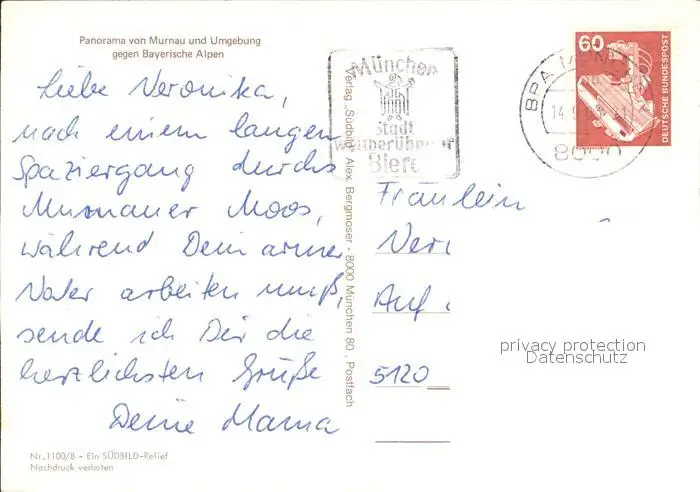 Panorama von Murnau und Umgebung
gegen Bayerische Alpen
Liebe Veronika,
nach einem langen
Spaziergang durchs
Murnauer Moos,
während Dein armer
Vater arbeiten muß,
sende ich Dir die
herzlichsten Grüße
Deine Mama
Nr. 1100/8 - Ein SÜDBILD-Relief
Nachdruck verboten
Verlag „Südbild" Alex. Bergmoser - 8000 München 80, Postfach
München
Stadt
weltberühmter
Biere
60
DEUTSCHE BUNDESPOST
BPA
8000
Fräulein
Auf
5120
privacy protection
Datenschutz